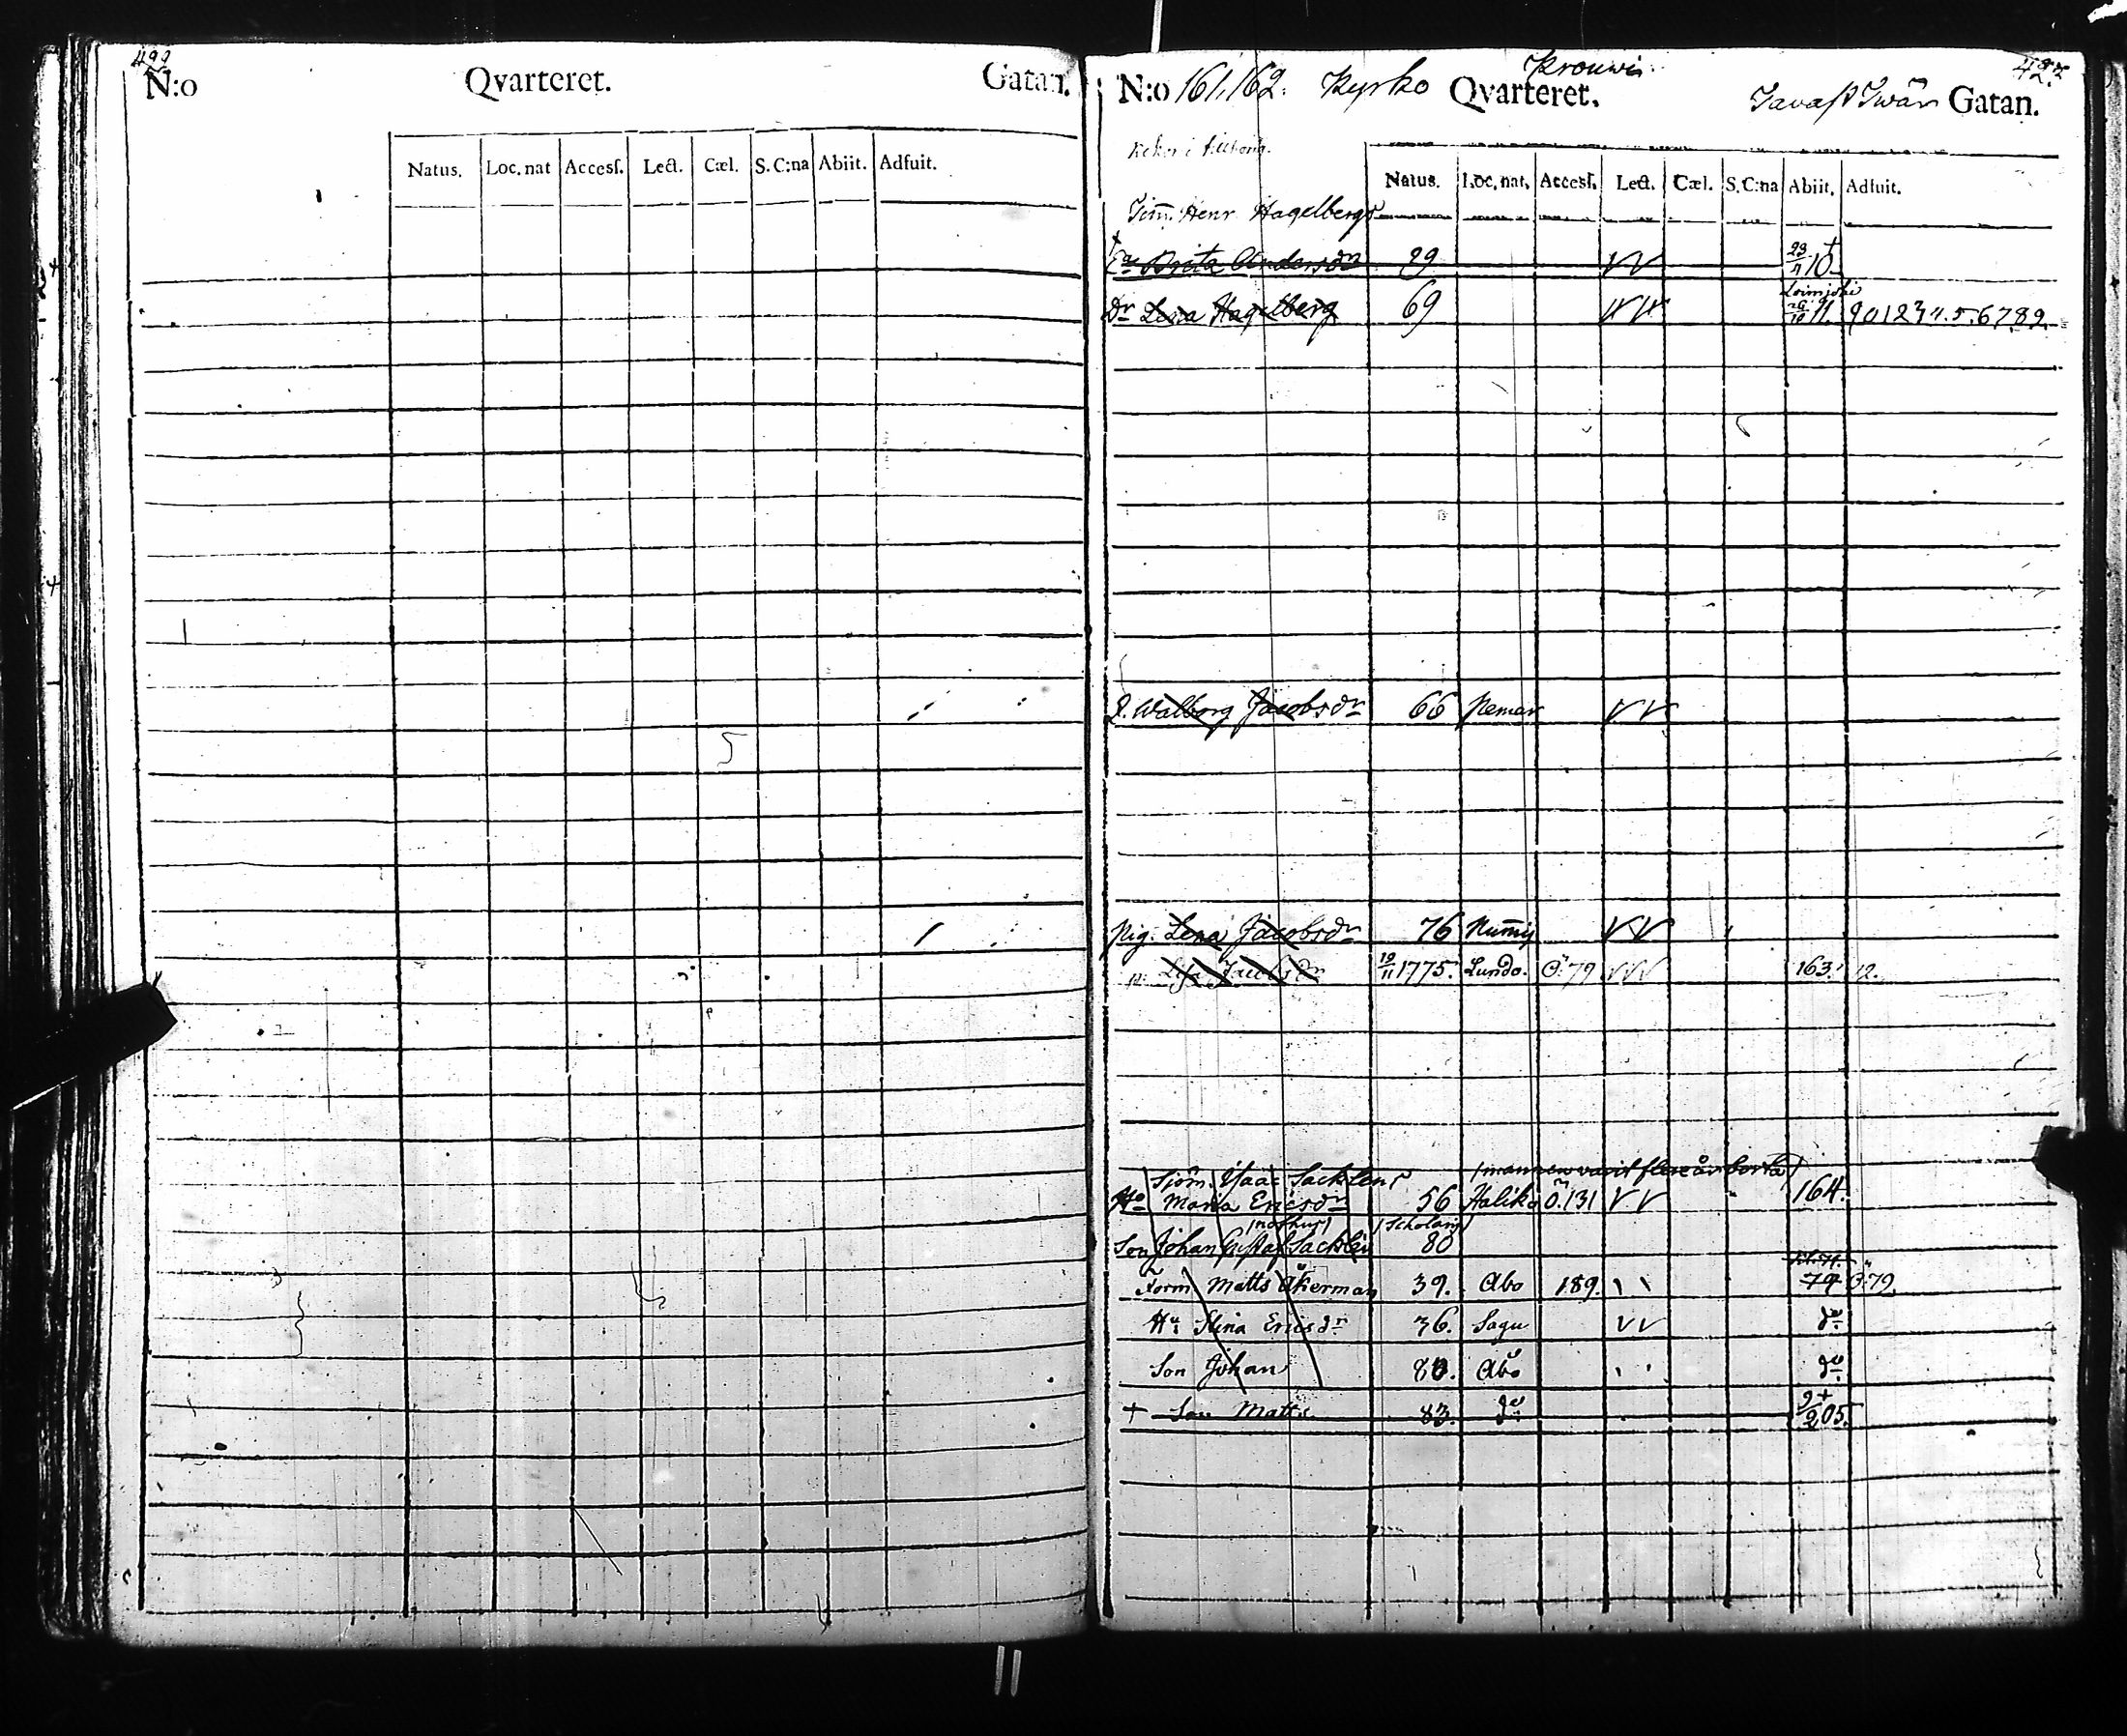 422
N:o Qvarteret. Gatan.
Natus. Loc. nat Accesſ. Lect. Cæl. S. C:na Abiit. Adfuit.
N:o 161.162. Kyrko Qvarteret. Gatan.
Natus. Loc. nat. Accesſ. Lect. Cæl. S. C:na Abiit. Adfuit.
Henr Hagelbergs
Brita Andersdr 29 23/11 10 †
Dr Lena Hagelberg 69 Loimjoki 26/10 11. 9 0 1 2 3 4. 5. 6 7 8 9.
I. Walborg Jacobsdr 66 Pemar
Pig. Lena Jacobsdr 76
Lisa Jacobsdr 19/11 1775. Lundo. Ö. 79 163. 12.
Sjöm. Isaac Sacklens (mannen varit flere år borta)
Maria Ericsdr 56 Haliko Ö. 131 164.
Son Johan Gustaf Sacklén 80
Matts Åkerman 39. Abo 189. 74 Ö. 79.
Hu Stina Ericsdr 36. Sagu do
Son Johan 80. Åbo do
† Son Matts 83. do 9/2 05. †